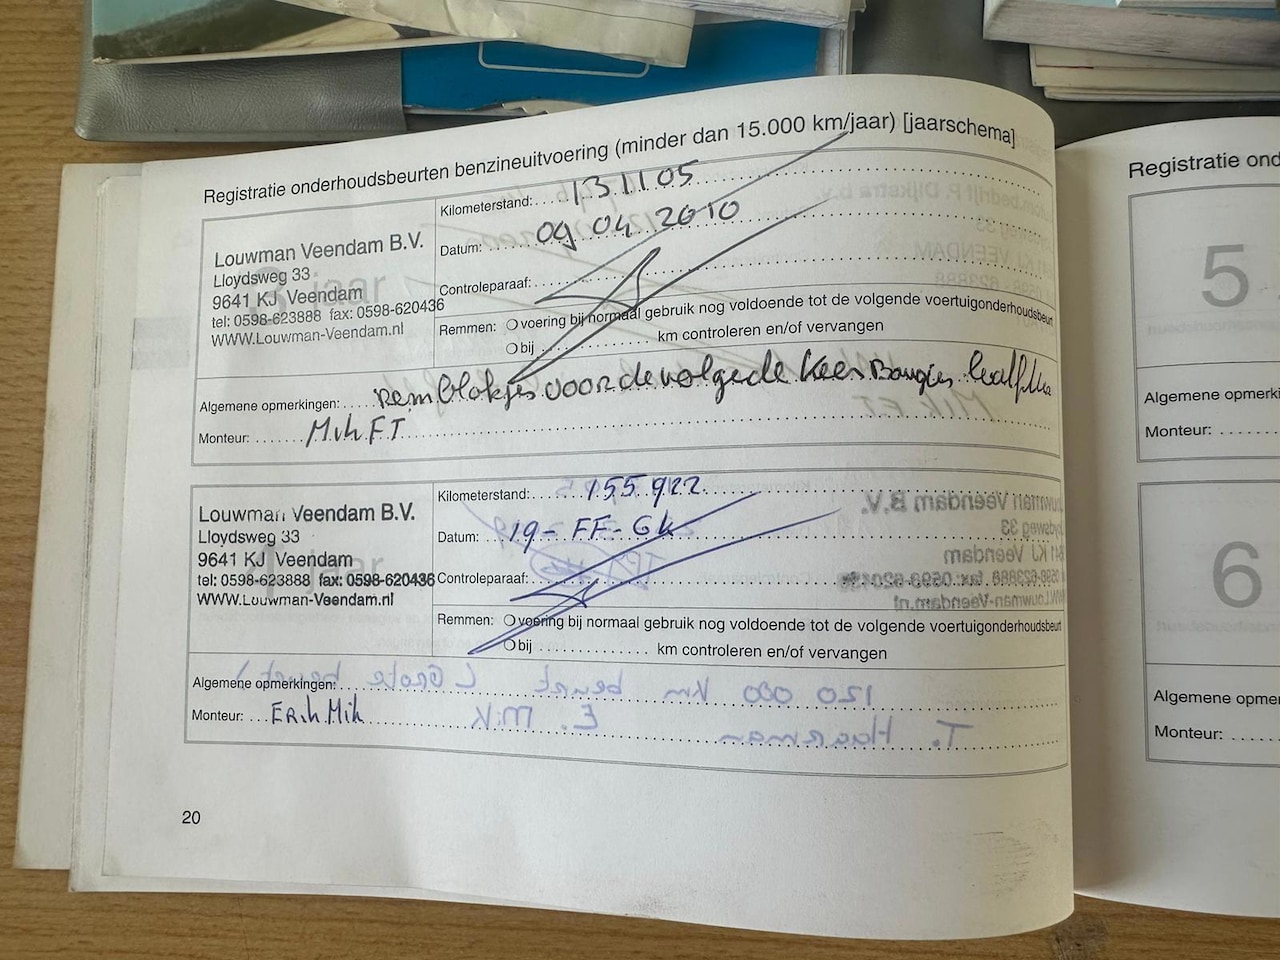 Registratie onderhoudsbeurten benzineuitvoering (minder dan 15.000 km/jaar) [jaarschema]
Louwman Veendam B.V.
Lloydsweg 33
9641 KJ Veendam
tel: 0598-623888 fax: 0598-620436
WWW.Louwman-Veendam.nl
jaar
Kilometerstand: 131105
Datum: 09 04 2010
Controleparaaf:
Remmen: voering bij normaal gebruik nog voldoende tot de volgende voertuigonderhoudsbeurt
bij km controleren en/of vervangen
Algemene opmerkingen: remblokjes voor de volgede keer Bougies
Monteur:
Louwman Veendam B.V.
Lloydsweg 33
9641 KJ Veendam
tel: 0598-623888 fax: 0598-620436
WWW.Louwman-Veendam.nl
jaar
Kilometerstand: 155922
Datum: 19-FF-GK
Controleparaaf:
Remmen: voering bij normaal gebruik nog voldoende tot de volgende voertuigonderhoudsbeurt
bij km controleren en/of vervangen
Algemene opmerkingen:
Monteur: Erik Mik
20
Registratie ond
5
Algemene opmerki
Monteur:
6
Algemene opme
Monteur: